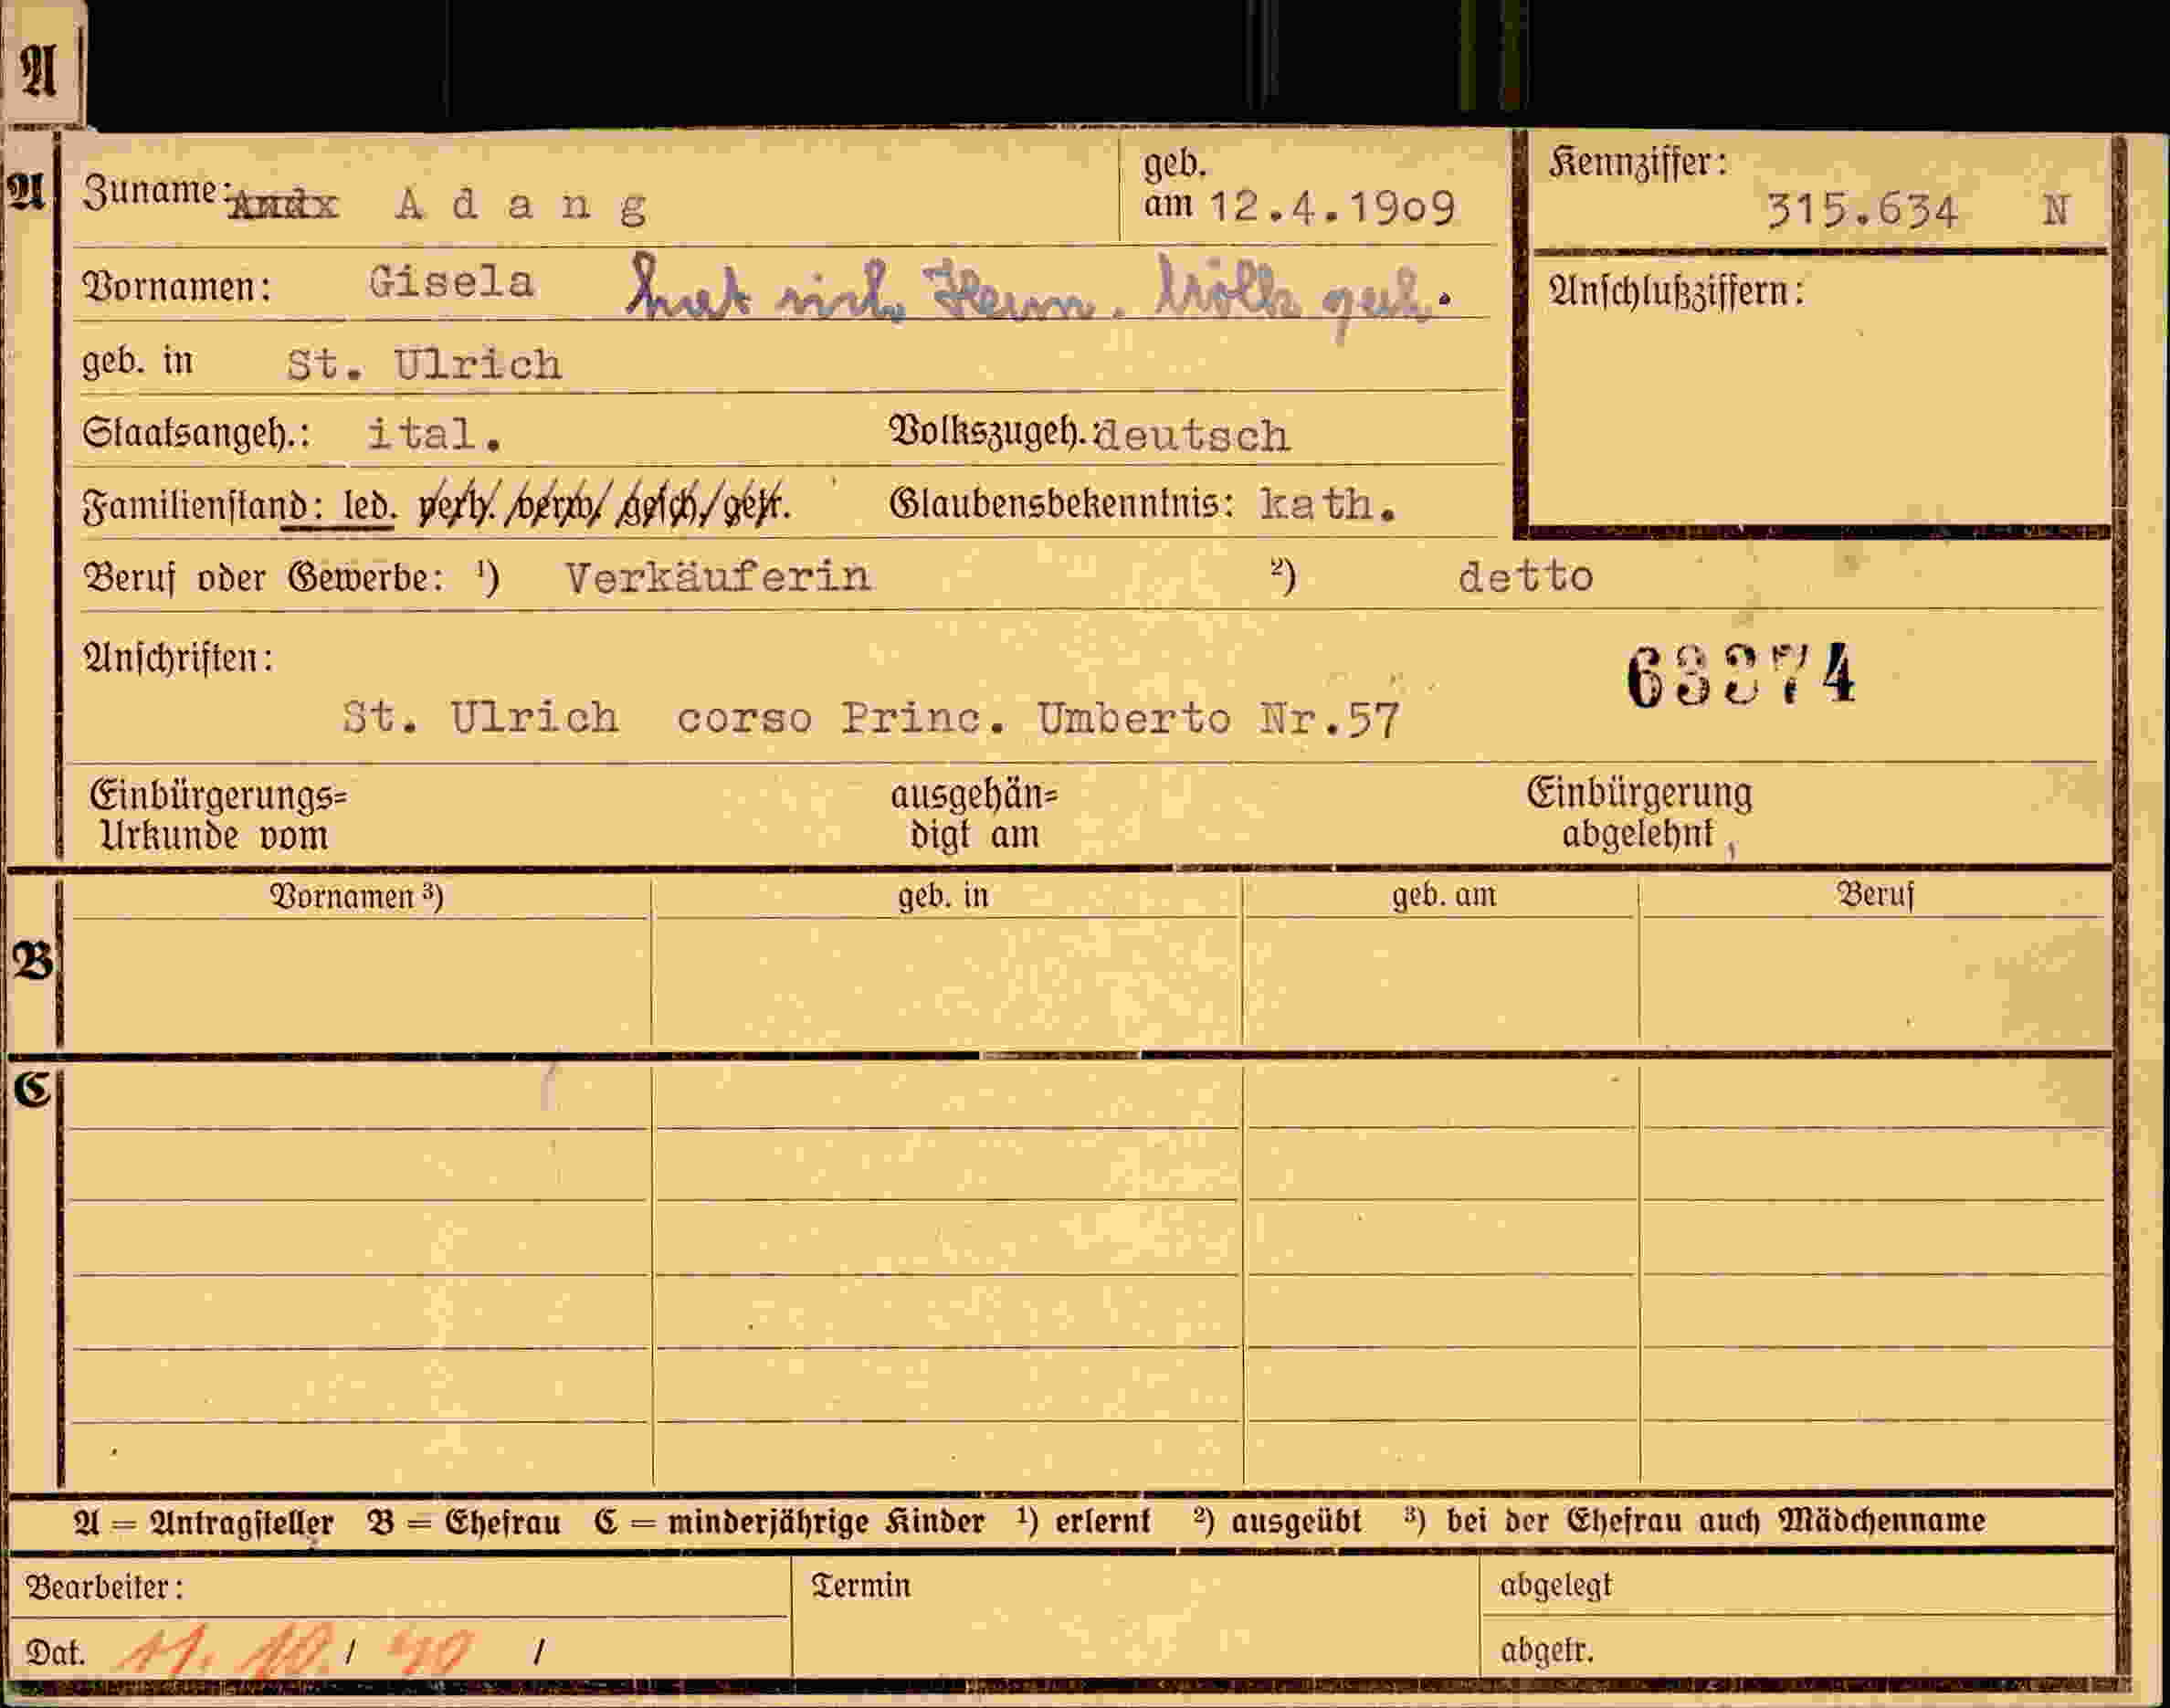 A
A
Zuname: Adang
geb.
am 12.4.1909
Kennziffer:
315.634 N
Vornamen: Gisela hat sich Herm.
Anschlußziffern:
geb. in St. Ulrich
Staatsangeh.: ital. Volkszugeh. deutsch
Familienstand: led. verh. verw. gesch. getr. Glaubensbekenntnis: kath.
Beruf oder Gewerbe: ¹) Verkäuferin ²) detto
Anschriften:
63374
St. Ulrich corso Princ. Umberto Nr.57
Einbürgerungs=
Urkunde vom
ausgehän=
digt am
Einbürgerung
abgelehnt
Vornamen ³) geb. in geb. am Beruf
B
C
A = Antragsteller B = Ehefrau C = minderjährige Kinder ¹) erlernt ²) ausgeübt ³) bei der Ehefrau auch Mädchenname
Bearbeiter: Termin abgelegt
Dat. 11. 10. / 40 / abgetr.